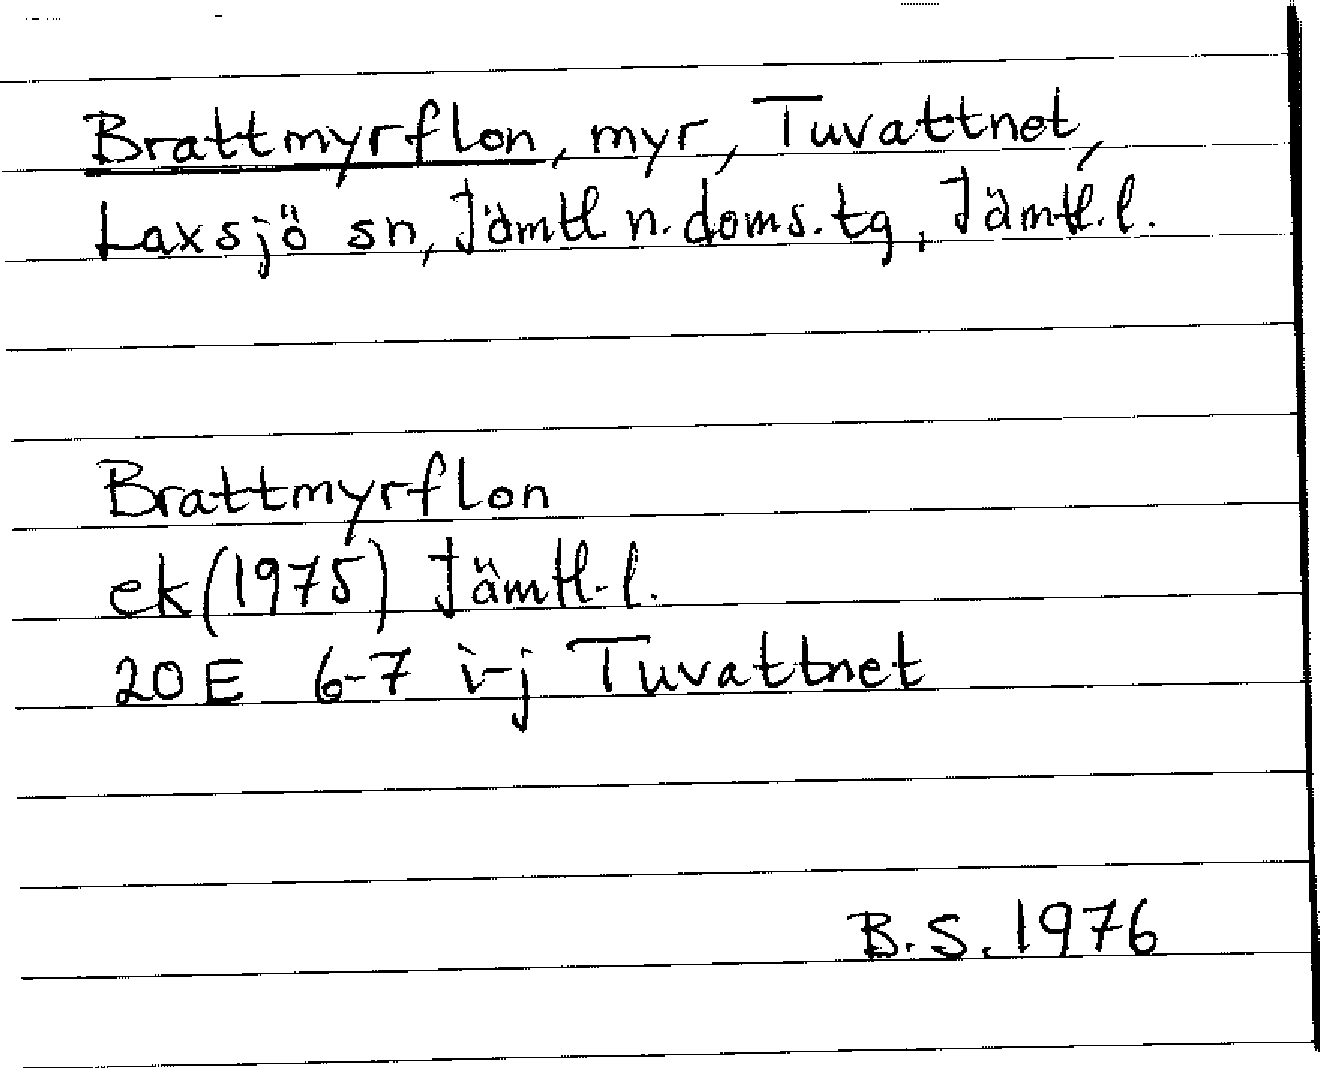 Brattmyrflon, myr, Tuvattnet,
Laxsjö sn, Jämtl n. doms. tg, Jämtl. l.
Brattmyrflon
ek (1975) Jämtl. l.
20 E 6-7 i-j Tuvattnet
B.S. 1976